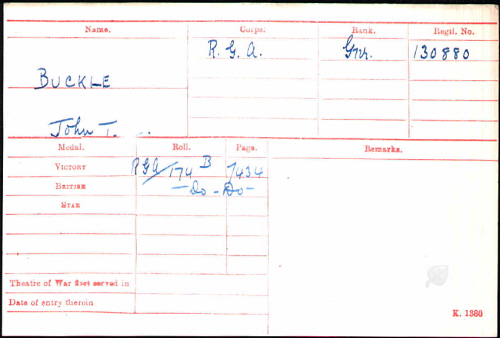 Name. Corps. Rank. Regtl. No.
R.G.A. Gnr. 130880
BUCKLE
John T.
Medal. Roll. Page. Remarks.
VICTORY RGA/174 B 7434
BRITISH —Do— Do—
STAR
Theatre of War first served in
Date of entry therein
K. 1380